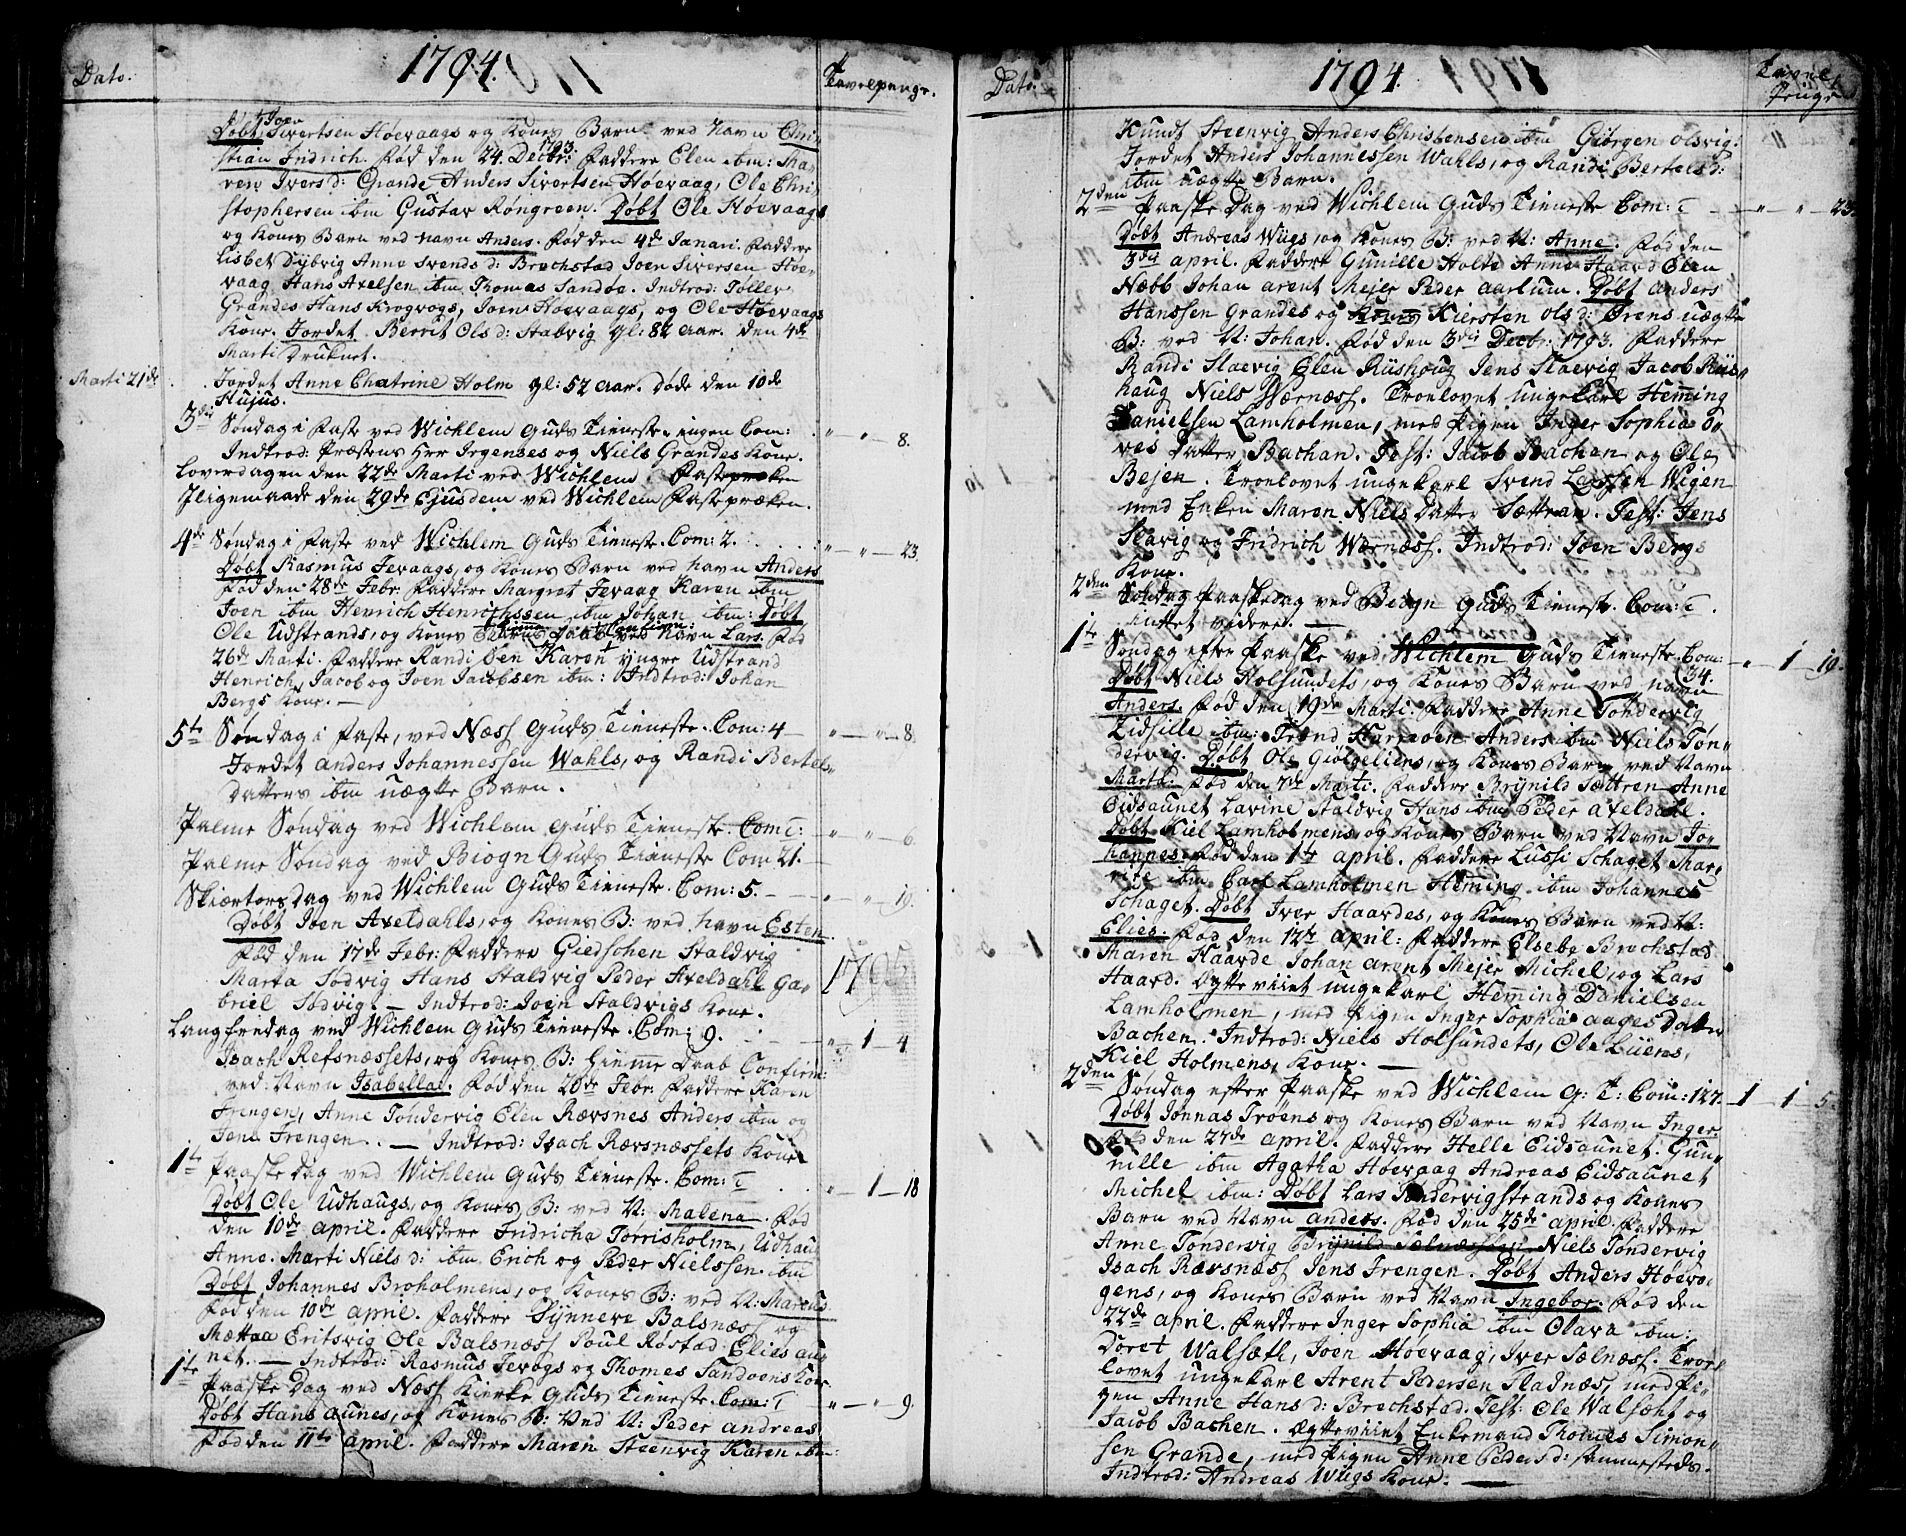 Dato.
1794.
Tavelpenge.
Døbt Joen Sivertsen Høevaags og Kones Barn ved Navn Chri-
stian Fridrich. Fød den 24. Decbr: 1793. Faddere Elen ibm: Ma-
ren Ivers d: Grande Anders Sivertsen Høevaag, Ole Chri-
stophersen ibm Gustav Røngreen. Døbt Ole Høevaags
og Kones Barn ved Navn Anders. Fød den 4de Janari. Faddere
Lisbet Dybvig Anne Svends d: Brechstad Joen Siversen Høe-
vaag Hans Axelsen ibm Thomas Sandøe. Indtrod: Töller
Grandes Hans Krogvogs, Joen Høevaags, og Ole Høevaags
Kone. Jordet Berrit Ols d: Stabvig gl: 82 Aar. den 4de
Marti Druknet.
Marti 21de
Jordet Anne Chatrine Holm gl: 52 Aar. døde den 10de
Hujus.
3die Søndag i Faste ved Wichlem Guds Tieneste. ingen Com: " " 8.
Indtrod: Præstens Herr Irgenses og Niels Grandes Kone.
Loverdagen den 22de Marti ved Wichlem Fastepræken
Iligemaade den 29de Ejusdem ved Wichlem Fastepræken.
4de Søndag i Faste ved Wichlem Guds Tieneste. Com: 2. " " 23.
Døbt Rasmus Jevaags, og Kones Barn ved Navn Anders
Fød den 28de Febr. Faddere Margret Jevaag Karen ibm
Joen ibm Henrich Henrichssen ibm Johan ibm: Døbt
Ole Udstrands, og Kones Barn ved Navn Lars. Fød
26de Marti. Faddere Randi Øen Karen yngre Udstrand
Henrich, Jacob og Joen Jacobsen ibm: Indtrod: Johan
Bergs Kone. —
5te Søndag i Faste, ved Næss Guds Tieneste. Com: 4 — " — " — 8
Jordet Anders Johannessen Wahls, og Randi Bertels-
Datters ibm uægte Barn.
Palme Søndag ved Wichlem Guds Tieneste. Com: " " 6
Palme Søndag ved Biogn Guds Tieneste Com 21. —
Skiærtorsdag ved Wichlem Guds Tieneste. Com: 5. — " — " — 19.
Døbt Joen Axeldahls, og Kones B: ved Navn Esten.
Fød den 17de Febr: Faddere Giedschen Staldvig
Marta Sodvig Hans Staldvig Peder Axeldahl Ga-
briel Sodvig. — Indtrod: Joen Staldvigs Kone.
Langfredag ved Wichlem Guds Tieneste. Com: 9. " — 1 — 4
Isach Refsnæssets, og Kones B: Hiemme Daab Confirm:
ved Navn Isabella. Fød den 20de Febr. Faddere Karen
Frengen, Anne Tondervig Elen Rævsnes Anders ibm og
Jens Frengen. — Indtrod: Isach Rævsnæssets Kone
1te Paaske Dag ved Wichlem Guds Tieneste. Com: " — 1 — 18
Døbt Ole Udhaugs, og Kones B: ved N: Malena. Fød
den 10de April. Faddere Fridricha Torrisholm, Udhaug
Anne. Marti Niels d: ibm Erich og Peder Nielssen ibm
Døbt Johannes Broholmens, og Kones B: ved N: Marcus
Fød den 10de April. Faddere Synneve Balsnæss og
Mættaa Eritsvig Ole Balsnæss Poul Røstad Elies Au-
net. — Indtrod: Rasmus Jevogs og Thomes Sandøens Kone.
1te Paaske Dag ved Næss Kierke Guds Tieneste. Com: " — " 9.
Døbt Hans Aunes, og Kones B: ved N: Peder Andreas
Fød den 11te April. Faddere Maren Steenvig Karen ibm:
Dato.
1794.
Tavel Penge
Knudt Steenvig Anders Christensen ibm Giörgen Olsvig.
Jordet Anders Johannessen Wahls, og Randi Bertels d:
ibm uægte Barn.
2den Paaske Dag ved Wichlem Guds Tieneste Com: — " — " — 23
Døbt Andreas Wiigs, og Kones B: ved N: Anne. Fød den
3die April. Faddere Gunille Holte Anne Haard Elen
Næbb Johan Arent Mejer Peder Aarlum. Døbt Anders
Hanssen Grandes og Kiersten Ols d: Ørens uægte
B: ved N: Johan. Fød den 3die Decbr: 1793. Faddere
Randi Slaevig Elen Riishoug Jens Slaevig Jacob Riis-
haug Niels Wærnæss. Troelovet ungekarl Hemming
Danielsen Lamholmen, med Pigen Inger Sophia O-
ves Datter Bachan. Test: Jacob Bachen og Ole
Bejen. Troelovet ungekarl Svend Larssen Wigen
med Enken Maren Niels Datter Sættran. Test: Jens
Slavig og Fridrich Wærnæss. Indtrod: Joen Bergs
Kone.
2den Paaskedag ved Beign Guds Tieneste. Com:
intet videre. —
1te Søndag efter Paaske ved Wichlem Guds Tieneste. Com: 34. " — 1 — 19.
Døbt Niels Holsundets, og Kones Barn ved Navn
Anders. Fød den 19de Marti. Faddere Anne Tondervig
Zidsille ibm: Trond Anders ibm Niels Tøn-
dervig. Døbt Ole Giöldeliens, og Kones Barn ved Navn
Martha. Fød den 7de Marti. Faddere Brynild Sættren Anne
Eidsaunet Lavine Staldvig Hans ibm Peder Axeldahl.
Døbt Kiel Lamholmens, og Kones Barn ved Navn Jo-
hannes. Fød den 1te April. Faddere Lussi Schaget Mar-
rite ibm Carl Lamholmen Heming ibm Johannes
Schaget. Døbt Iver Haardes, og Kones Barn ved N:
Elies. Fød den 12te April: Faddere Elsebe Brechstad
Maren Haarde Johan Arent Mejer Michel, og Lars
Haard. Egteviiet ungekarl Hemming Danielsen
Lamholmen, med Pigen Inger Sophia Aages Datter
Bachen. Indtrod: Niels Holsundets, Ole Liiens,
Kiel Holmens, Kone. —
2den Søndag efter Paaske ved Wichlem G: T: Com: 127. — 1 — 1 — 5.
Døbt Jonnas Troens og Kones Barn ved Navn Inger
Fød den 27de April. Faddere Helle Eidsaunet. Gun-
nille ibm Agatha Høevaag Andreas Eidsaunet
Michel ibm: Døbt Lars Tondervigstrands og Kones
Barn ved Navn Anders. Fød den 25de April. Faddere
Anne Tondervig Brynild Sælnessen Niels Tondervig
Isach Rævsnæss Jens Frengen. Døbt Anders Høevo-
gens, og Kones Barn ved Navn Ingebor. Fød den
22de April. Faddere Inger Sophia ibm Olava ibm:
Doret Walsætl, Joen Høevaag, Iver Sælnæss. Troe-
lovet ungekarl Arent Pedersen Fladnæs, med Pi-
gen Anne Hans d: Brechstad. Test: Ole Walsæht og
Jacob Bachen. Ægteviiet Enkemand Thomes Simon-
sen Grande, med Pigen Anne Peders d: sammesteds.
Indtrod: Andreas Wiigs Kone. —